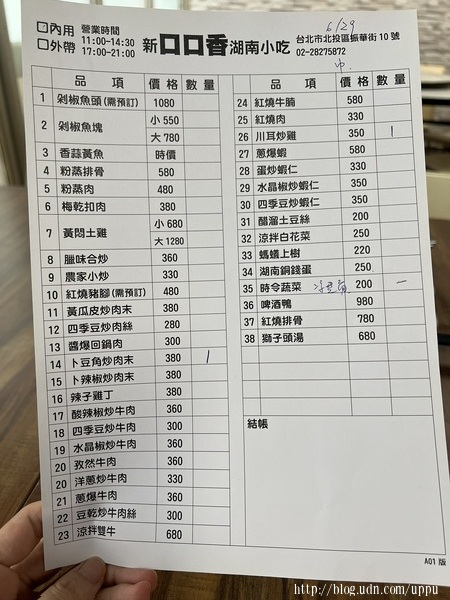 □內用 營業時間
□外帶 11:00-14:30
17:00-21:00
新口口香湖南小吃
6/29
台北市北投區振華街10號
02-28275872
品 項 價格 數量
1 剁椒魚頭(需預訂) 1080
2 剁椒魚塊 小 550
大 780
3 香蒜黃魚 時價
4 粉蒸排骨 580
5 粉蒸肉 480
6 梅乾扣肉 380
7 黃悶土雞 小 680
大 1280
8 臘味合炒 360
9 農家小炒 330
10 紅燒豬腳(需預訂) 480
11 黃瓜皮炒肉末 380
12 四季豆炒肉末 280
13 醬爆回鍋肉 300
14 卜豆角炒肉末 380 1
15 卜辣椒炒肉末 380
16 辣子雞丁 380
17 酸辣椒炒牛肉 360
18 四季豆炒牛肉 300
19 水晶椒炒牛肉 360
20 孜然牛肉 360
20 洋蔥炒牛肉 330
21 蔥爆牛肉 360
22 豆乾炒牛肉絲 300
23 涼拌雙牛 680
品 項 價格 數量
24 紅燒牛腩 580
25 紅燒肉 330
26 川耳炒雞 350 1
27 蔥爆蝦 580
28 蛋炒蝦仁 330
29 水晶椒炒蝦仁 350
30 四季豆炒蝦仁 350
31 醋溜土豆絲 200
32 涼拌白花菜 250
33 螞蟻上樹 220
34 湖南銅錢蛋 250
35 時令蔬菜 200 一
36 啤酒鴨 980
37 紅燒排骨 780
38 獅子頭湯 680
結帳
A01 版
http://blog.udn.com/uppu